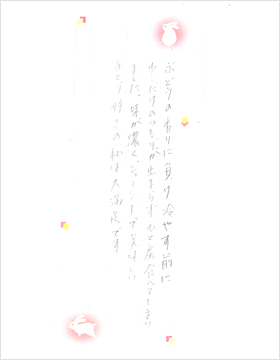 ぶどうの香りに負け冷やす前に
少しだけのつもりが止まらずひと房食べてしまい
ました。味が濃く、ジューシーで美味しい
ぶどう好きの私は大満足です